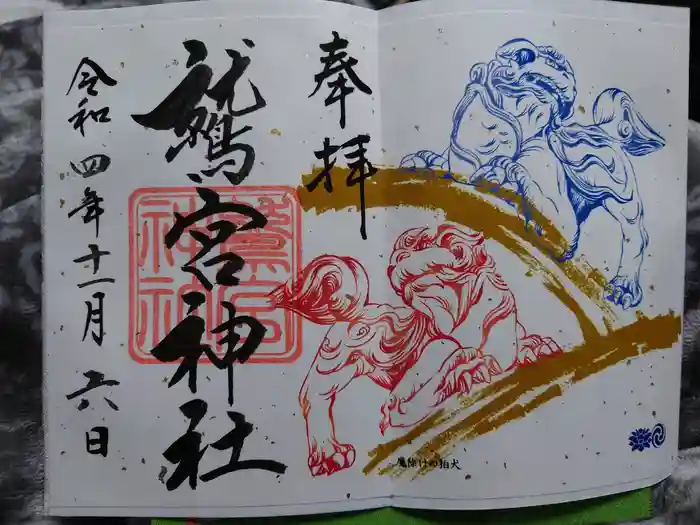 奉拝
鷲宮神社
令和四年十一月六日
魔除けの狛犬